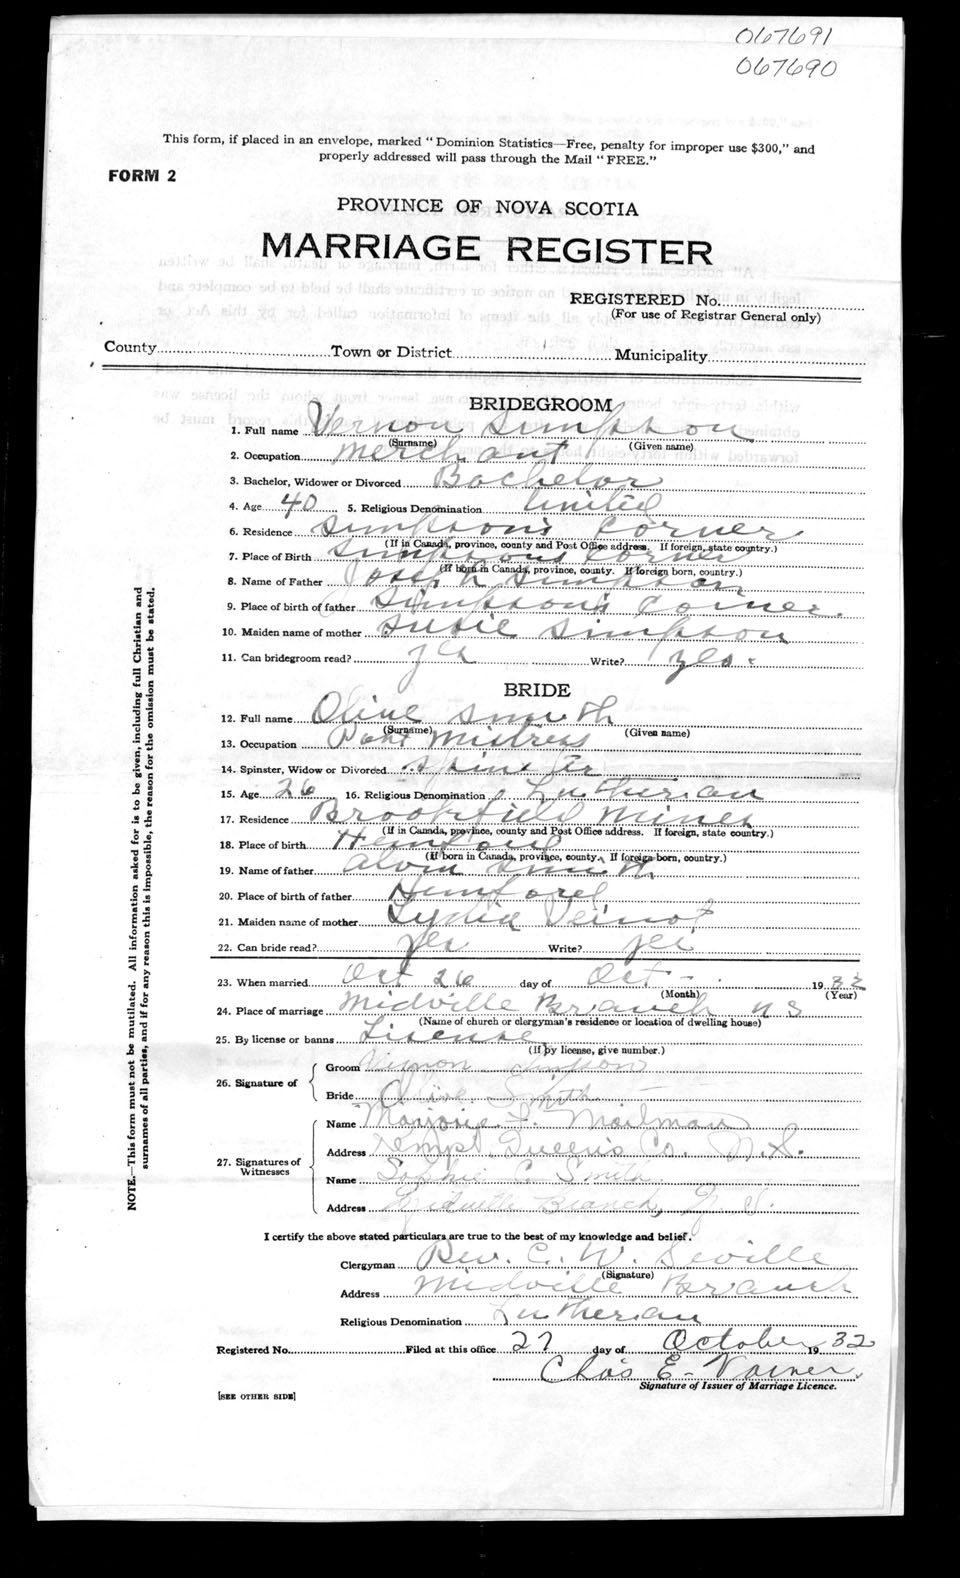 067691
067690
This form, if placed in an envelope, marked "Dominion Statistics—Free, penalty for improper use $300," and
properly addressed will pass through the Mail "FREE."
FORM 2
PROVINCE OF NOVA SCOTIA
MARRIAGE REGISTER
REGISTERED No.
(For use of Registrar General only)
County Town or District Municipality
BRIDEGROOM
1. Full name Vernon Simpson
(Surname) (Given name)
2. Occupation merchant
3. Bachelor, Widower or Divorced Bachelor
4. Age 40 5. Religious Denomination United
6. Residence Simpson's Corner
(If in Canada, province, county and Post Office address. If foreign, state country.)
7. Place of Birth Simpsons Corner
(If born in Canada, province, county. If foreign born, country.)
8. Name of Father Joseph Simpson
9. Place of birth of father Simpson's Corner.
10. Maiden name of mother Susie Simpson
11. Can bridegroom read? yes Write? yes.
BRIDE
12. Full name Olive Smith
(Surname) (Given name)
13. Occupation Post Mistress
14. Spinster, Widow or Divorced Spinster
15. Age 26 16. Religious Denomination Lutherian
17. Residence Brookfield Mines
(If in Canada, province, county and Post Office address. If foreign, state country.)
18. Place of birth Hemford
(If born in Canada, province, county. If foreign born, country.)
19. Name of father Alvin Smith
20. Place of birth of father Hemford
21. Maiden name of mother Lydia Veinot
22. Can bride read? yes Write? yes
23. When married Oct 26 day of Oct 1932
(Month) (Year)
24. Place of marriage Midville Branch N S
(Name of church or clergyman's residence or location of dwelling house)
25. By license or banns License
(If by license, give number.)
26. Signature of
Groom Vernon Simpson
Bride Olive Smith
27. Signatures of Witnesses
Name Marjorie F. Mailman
Address Kempt Queen's Co. N.S.
Name Sophie C. Smith.
Address Midville Branch, N. S.
I certify the above stated particulars are true to the best of my knowledge and belief.
Clergyman Rev. C. W. Seville
(Signature)
Address Midville Branch
Religious Denomination Lutherian
Registered No. Filed at this office 27 day of October 1932
Chas E. Varner.
Signature of Issuer of Marriage Licence.
[SEE OTHER SIDE]
NOTE.—This form must not be mutilated. All information asked for is to be given, including full Christian and
surnames of all parties, and if for any reason this is impossible, the reason for the omission must be stated.